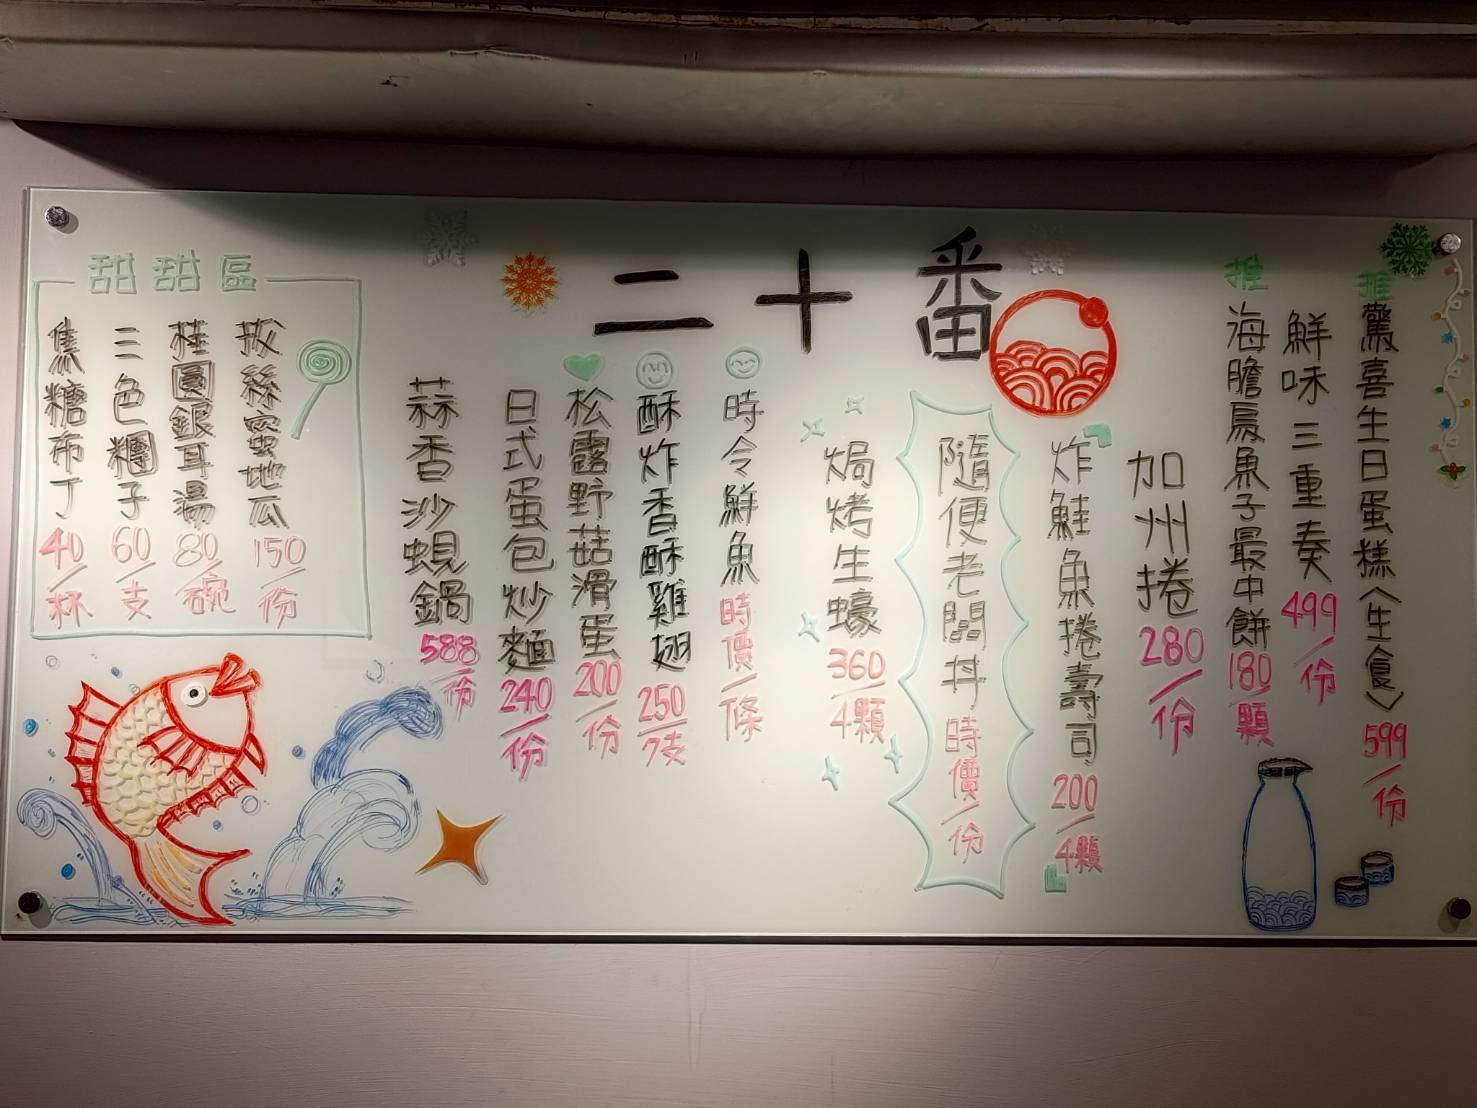 二十番
推
驚喜生日蛋糕(生食)599/份
鮮味三重奏499/份
推
海膽烏魚子最中餅180/顆
加州捲280/份
炸鮭魚捲壽司200/4顆
隨便老闆丼時價/份
焗烤生蠔360/4顆
時令鮮魚時價/條
酥炸香酥雞翅250/7支
松露野菇滑蛋200/份
日式蛋包炒麵240/份
蒜香沙蜆鍋588/份
甜甜區
拔絲蜜地瓜150/份
桂圓銀耳湯80/碗
三色糰子60/支
焦糖布丁40/杯